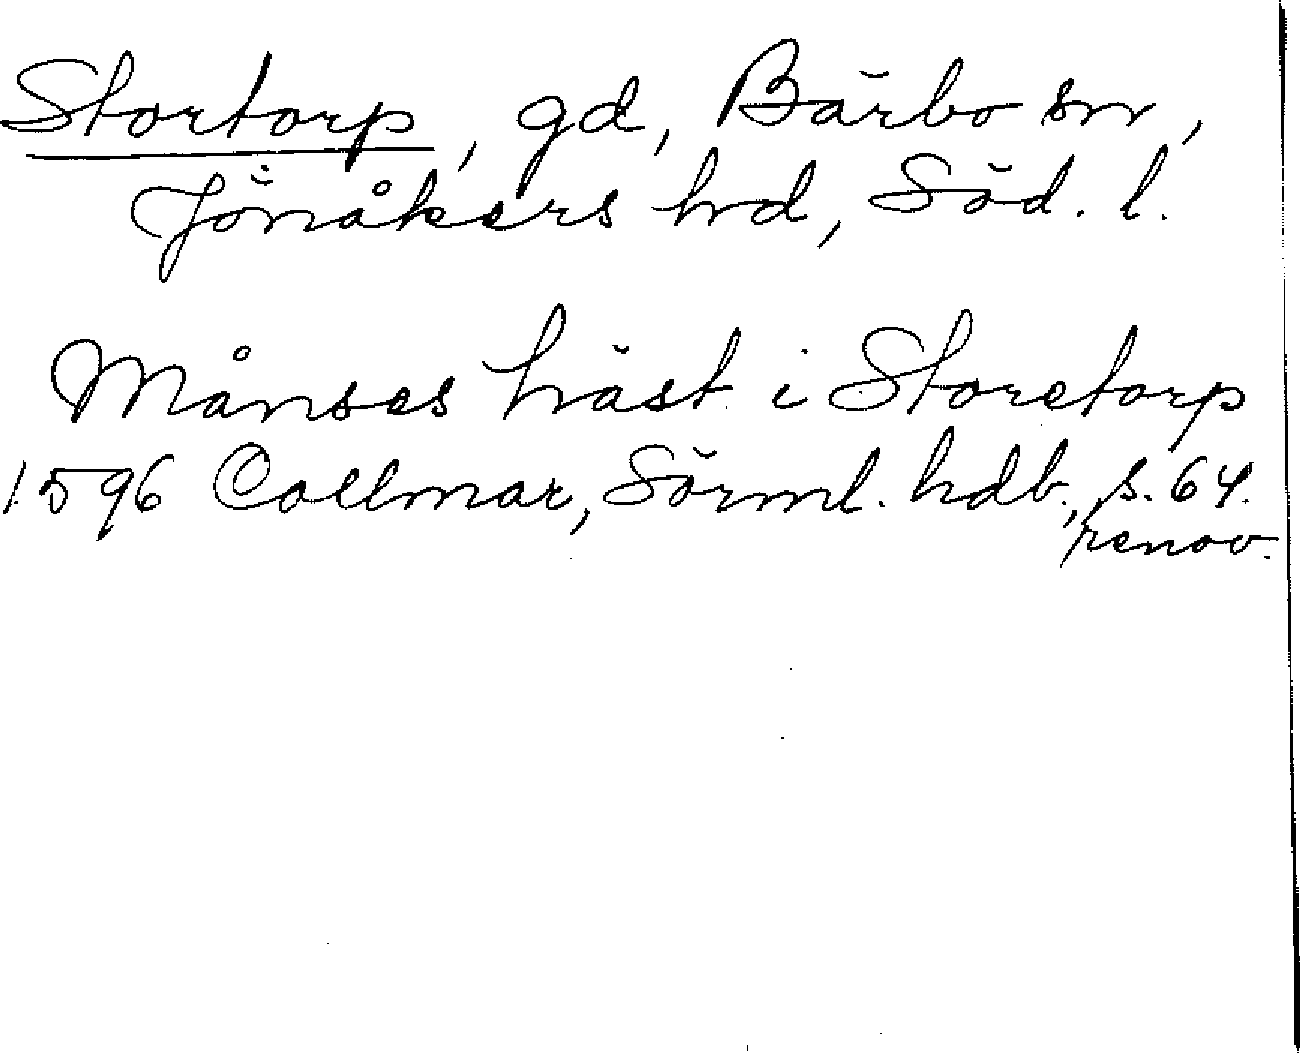 Stortorp, gd, Bärbo sn,
Jönåkers hd, Söd. l.
Månses häst i Storetorp
1596 Collmar, Sörml. hdb., s. 64.
renov.